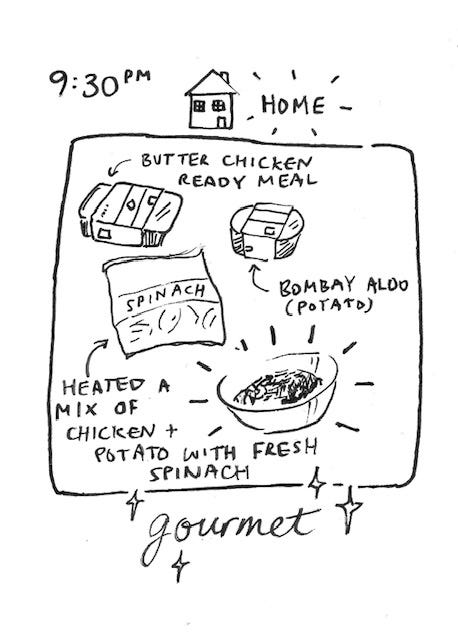 9:30PM
HOME
BUTTER CHICKEN
READY MEAL
BOMBAY ALOO
(POTATO)
SPINACH
HEATED A
MIX OF
CHICKEN +
POTATO WITH FRESH
SPINACH
gourmet